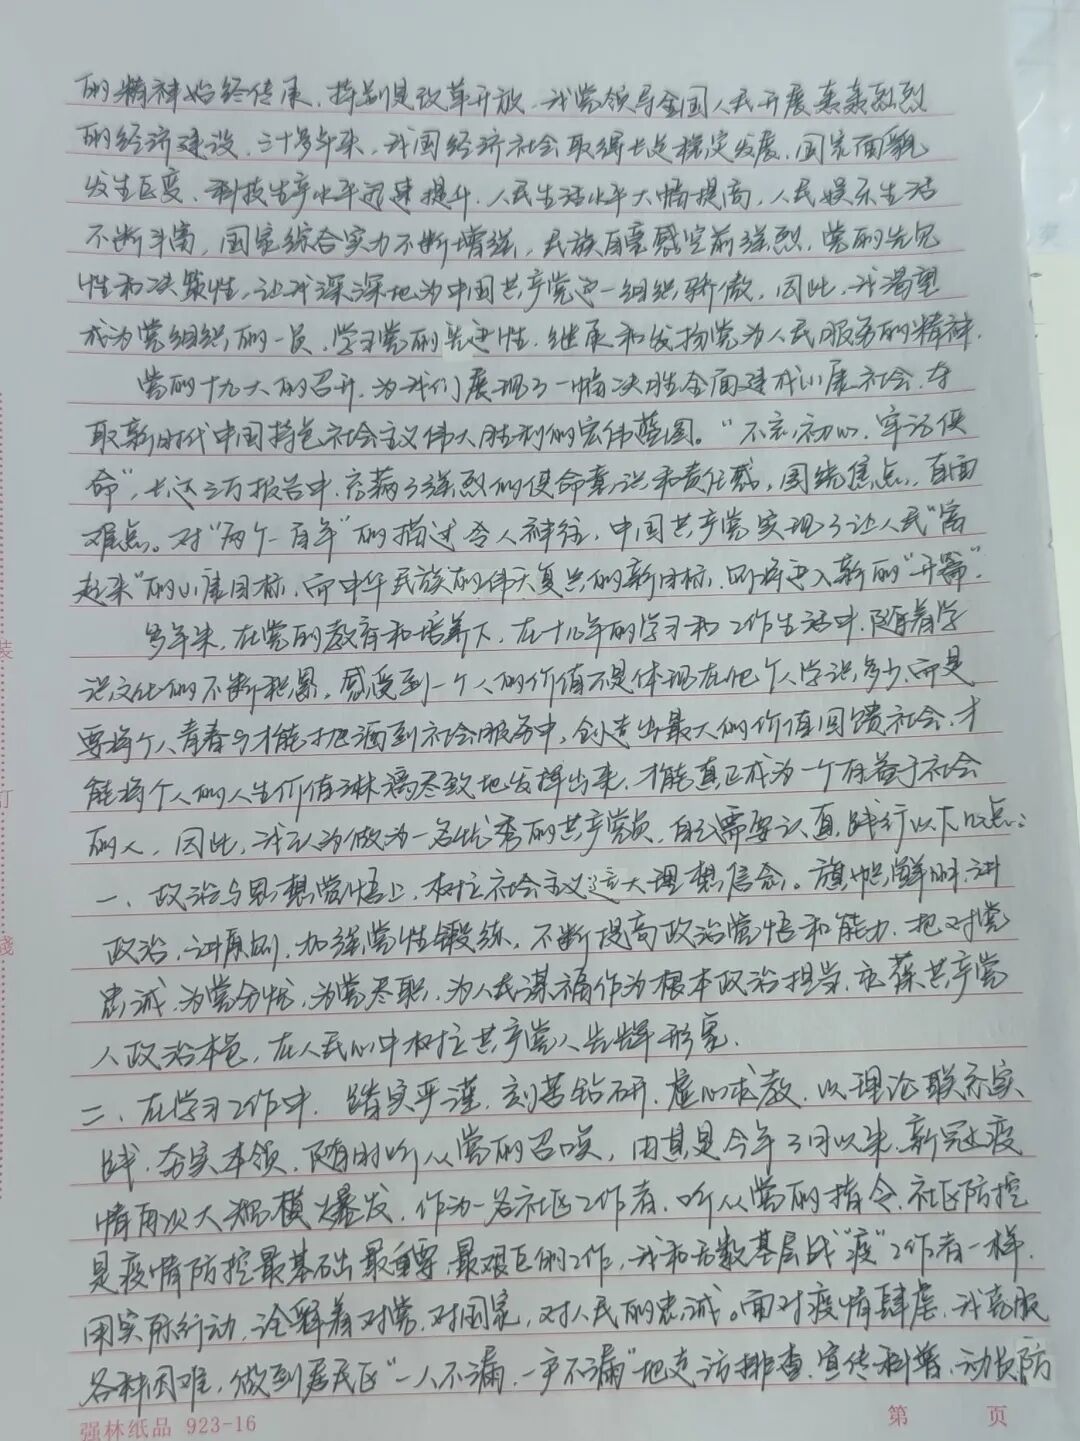 的精神始终传承，特别是改革开放，我党领导全国人民开展轰轰烈烈
的经济建设，三十多年来，我国经济社会取得长足稳定发展，国家面貌
发生巨变，科技生产水平迅速提升，人民生活水平大幅提高，人民娱乐生活
不断丰富，国家综合实力不断增强，民族自豪感空前强烈，党的先见
性和决策性，让我深深地为中国共产党这一组织骄傲，因此，我渴望
成为党组织的一员，学习党的先进性，继承和发扬党为人民服务的精神。
党的十九大的召开，为我们展现了一幅决胜全面建成小康社会，夺
取新时代中国特色社会主义伟大胜利的宏伟蓝图。“不忘初心，牢记使
命”，长达三万报告中，充满了强烈的使命意识和责任感，围绕焦点，直面
难点。对“两个一百年”的描述令人神往，中国共产党实现了让人民“富
起来”的小康目标，而中华民族的伟大复兴的新目标，即将进入新的“开篇”。
多年来，在党的教育和培养下，在十几年的学习和工作生活中，随着学
识文化的不断积累，感受到一个人的价值不是体现在他个人学识多少，而是
要将个人青春与才能挥洒到社会服务中，创造出最大的价值回馈社会，才
能将个人的人生价值淋漓尽致地发挥出来，才能真正成为一个有益于社会
的人，因此，我认为做为一名优秀的共产党员，自己需要认真践行以下几点：
一、政治与思想觉悟上，树立社会主义远大理想信念。旗帜鲜明讲
政治，讲原则，加强党性锻练，不断提高政治觉悟和能力，把对党
忠诚，为党分忧，为党尽职，为人民谋福作为根本政治担当，永葆共产党
人政治本色，在人民心中树立共产党人光辉形象。
二、在学习工作中，踏实严谨，刻苦钻研，虚心求教，以理论联系实
践，夯实本领，随时听从党的召唤，尤其是今年3月以来，新冠疫
情再次大规模爆发，作为一名社区工作者，听从党的指令，社区防控
是疫情防控最基础最重要，最艰巨的工作，我和无数基层战“疫”工作者一样，
用实际行动，诠释着对党，对国家，对人民的忠诚。面对疫情肆虐，我克服
各种困难，做到居民区“一人不漏，一户不漏”地走访排查，宣传科普，动员防
强林纸品 923-16
第 页
装
订
线